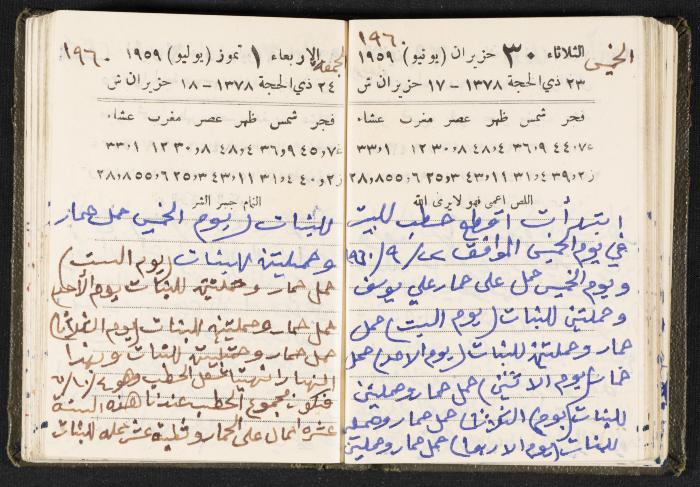 الخميس
١٩٦٠
الثلاثاء ٣٠ حزيران (يونيو) ١٩٥٩
٢٣ ذي الحجة ١٣٧٨ – ١٧ حزيران ش
فجر شمس ظهر عصر مغرب عشاء
اللص اعمى فهو لا يرى الله
ابتدأت اقطع حطب للبيت
في يوم الخميس الموافق ٢٢/٩/١٩٦٠
ويوم الخميس حمل على حمار علي يوسف
وحملتين للبنات (يوم السبت) حمل
حمار وحملتين للبنات (يوم الاحد) حمل
حمار (يوم الاثنين) حمل حمار وحملتين
للبنات (يوم الثلاثاء) حمل حمار وحملتين
للبنات (يوم الاربعاء) حمل حمار وحملتين
الجمعة
١٩٦٠
الاربعاء ١ تموز (يوليو) ١٩٥٩
٢٤ ذي الحجة ١٣٧٨ – ١٨ حزيران ش
فجر شمس ظهر عصر مغرب عشاء
النمام جسر الشر
للبنات (يوم الخميس حمل حمار
وحملتين للبنات (يوم السبت)
حمل حمار وحملتين للبنات يوم الأحد
حمل حمار وحملتين للبنات (يوم الثلاثاء)
حمل حمار وحملتين للبنات وبهذا
النهار انتهينا نقل الحطب وهو
فتكون مجموع الحطب عندنا هذه السنة
عشرة احمال على الحمار و عشر حمله للبنات